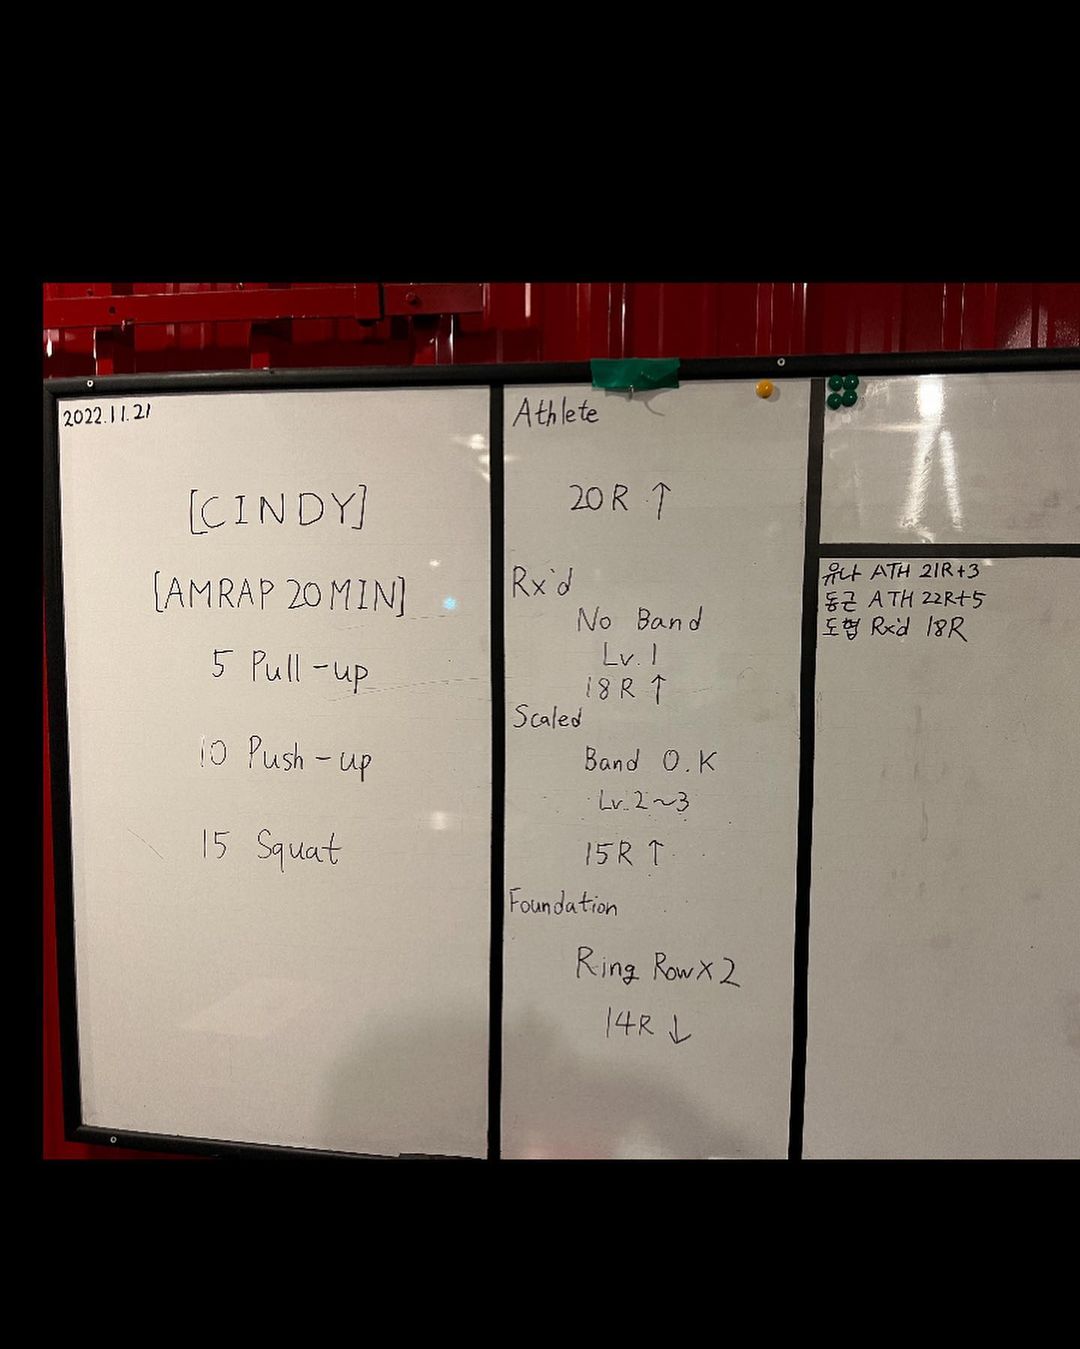 2022.11.21
[CINDY]
[AMRAP 20 MIN]
5 Pull-up
10 Push-up
15 Squat
Athlete
20R ↑
Rx'd
No Band
Lv.1
18R ↑
Scaled
Band O.K
Lv.2~3
15R ↑
Foundation
Ring Row x 2
14R ↓
유나 ATH 21R+3
동근 ATH 22R+5
도협 Rx'd 18R